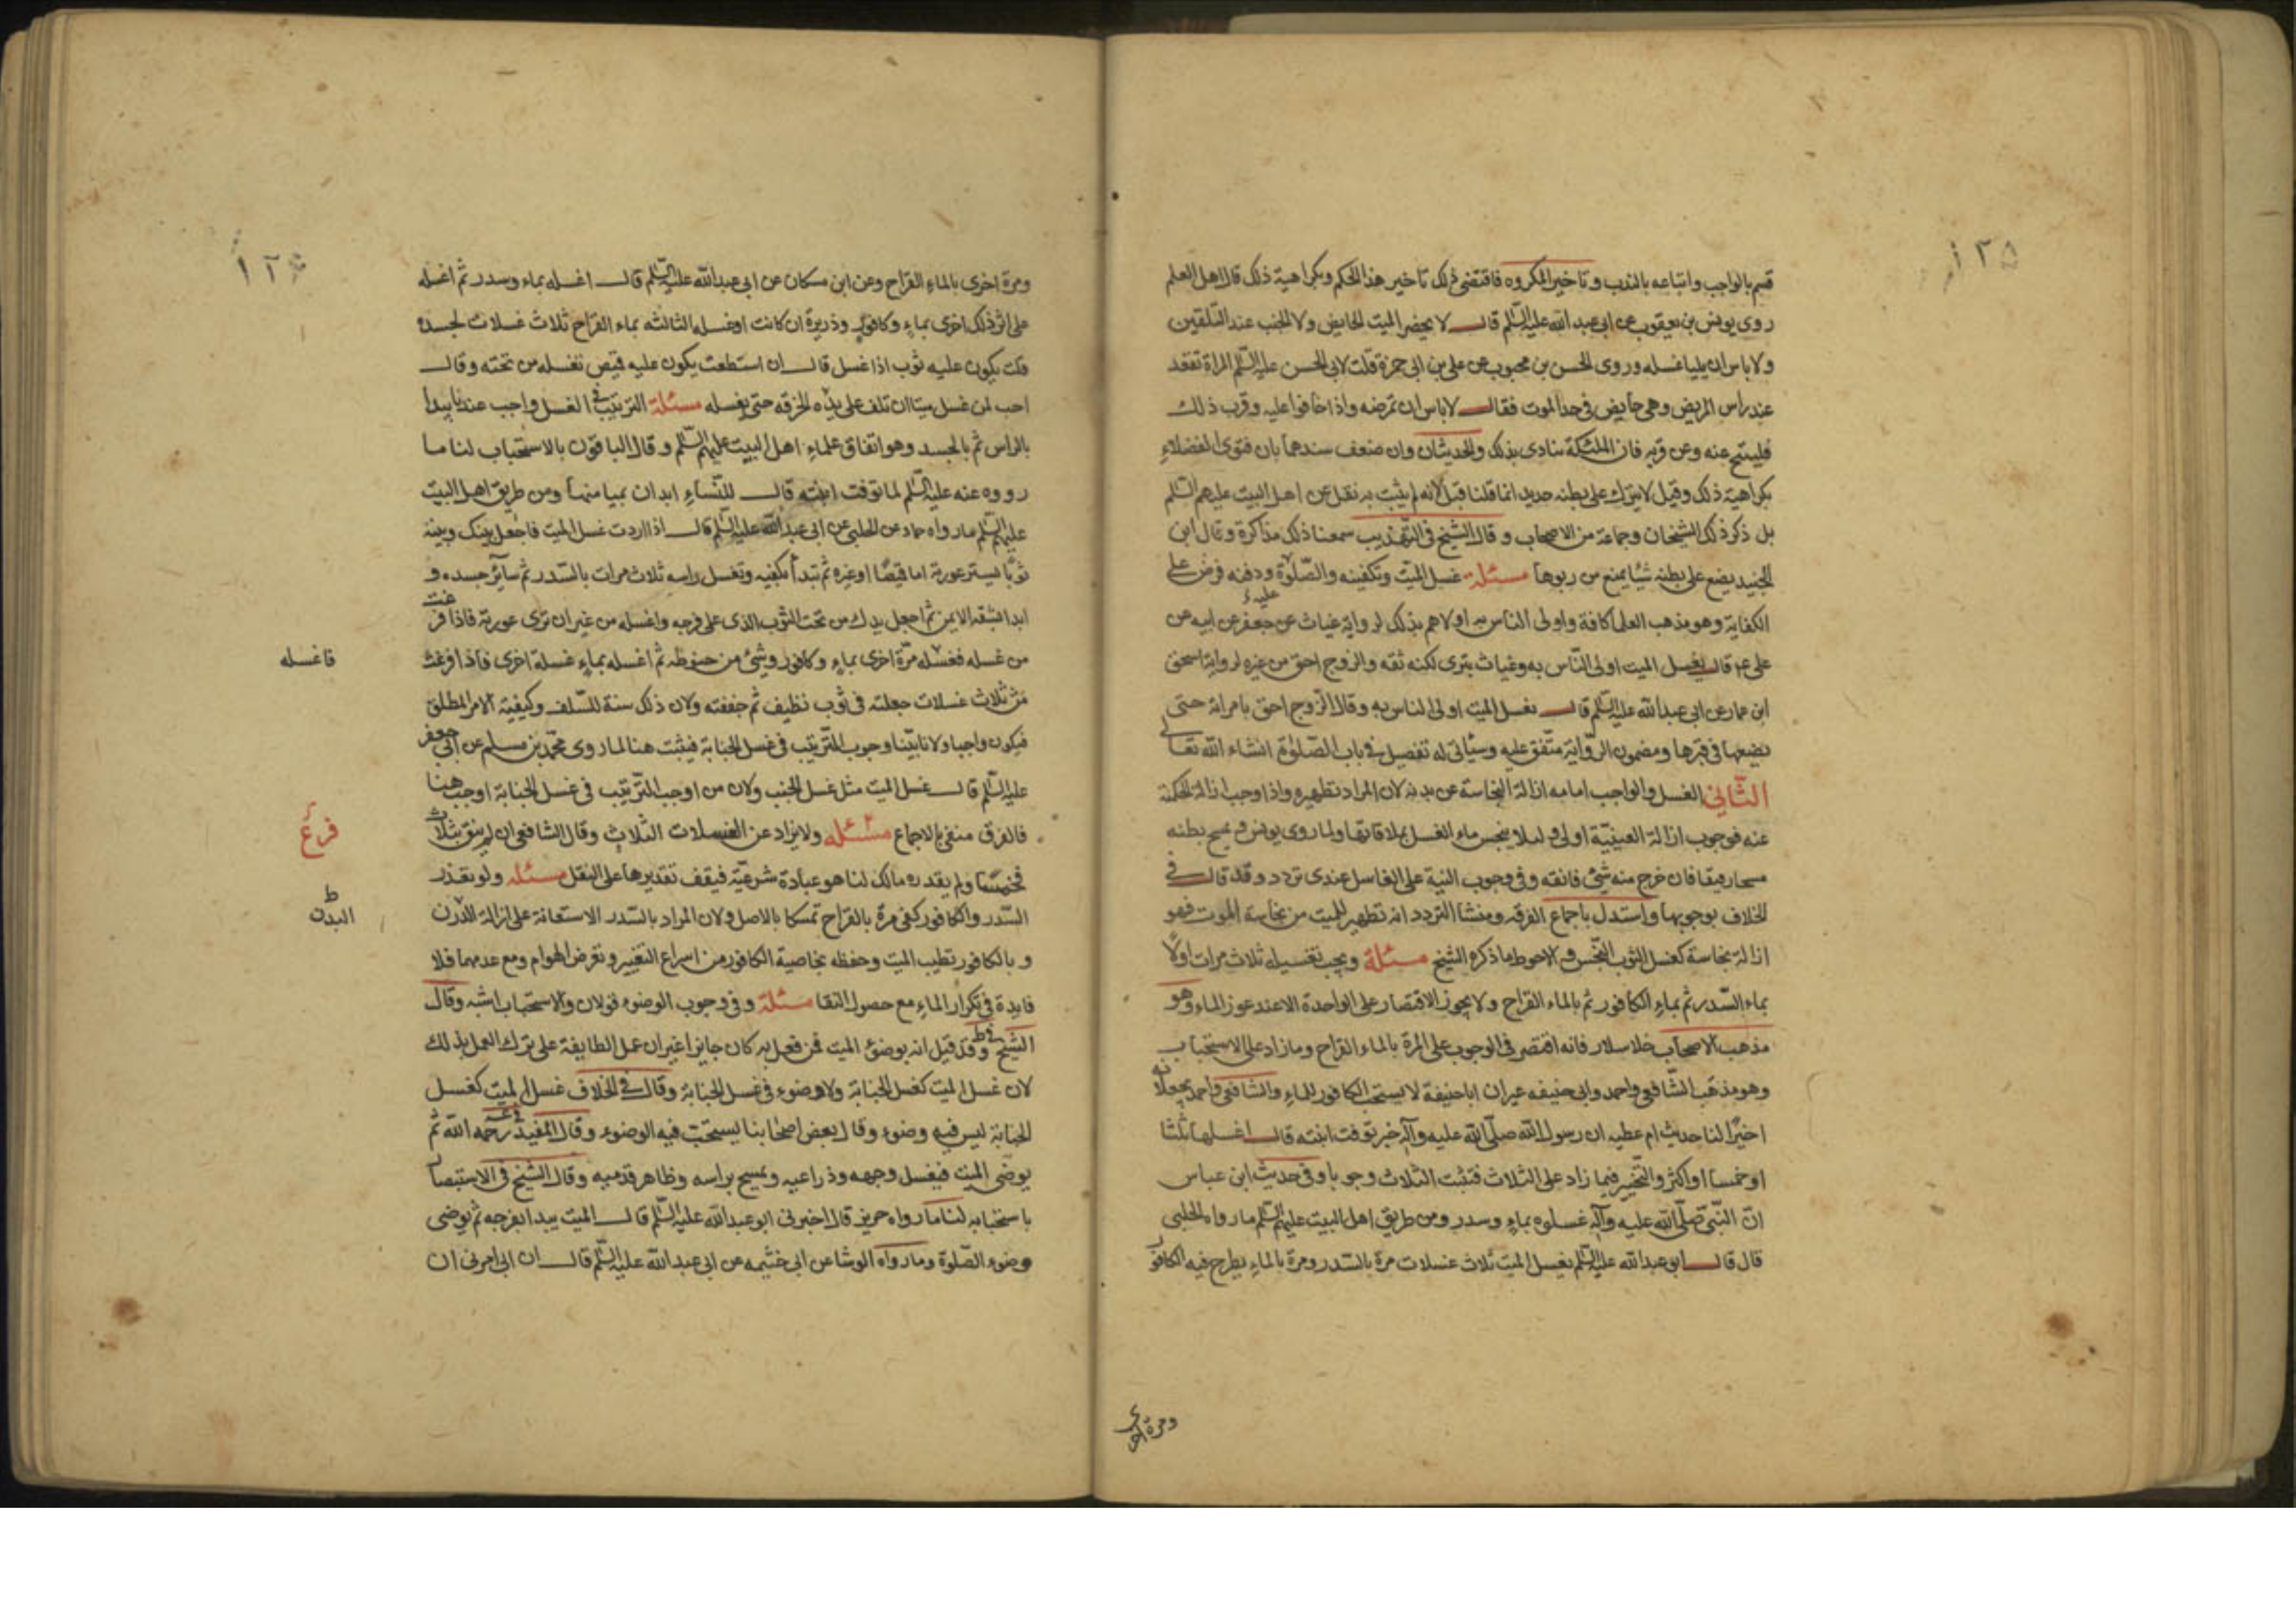 ١٢٥
قسم بالواجب واتباعه بالندب وتاخير المكروه فاقتضى ذلك تاخير هذا الحكم وبكراهية ذلك قال اهل العلم
روى يونس بن يعقوب عن ابى عبد الله عليه السّلم قال لا يحضر الميت الحايض ولا الجنب عند التلقين
ولا باس ان يليا غسله وروى الحسن بن محبوب عن على بن ابى حمزة قلت لابى الحسن عليه السّلم المراة تقعد
عند راس المريض وهى حايض فى حد الموت فقال لا باس ان تمرضه واذا خافوا عليه وقرب ذلك
فليتنح عنه وعن قربه فان الملئكة تتاذى بذلك والحديثان وان ضعف سندهما بان فتوى الفضلاء
بكراهية ذلك وقيل لا يترك على بطنه حديد انما قلنا قيل لانه لم يثبت به نقل عن اهل البيت عليهم السّلم
بل ذكر ذلك الشيخان وجماعة من الاصحاب وقال الشيخ فى التهذيب سمعنا ذلك مذاكرة وقال ابن
الجنيد يضع على بطنه شيئا يمنع من ربوها مسئلة غسل الميّت وتكفينه والصّلوة عليه ودفنه فرض على
الكفاية وهو مذهب العلماء كافة واولى الناس به اولاهم بذلك لرواية غياث عن جعفر عن ابيه عن
على ع قال يغسل الميت اولى النّاس به وغياث بترى لكنه ثقه والزوج احق من غيره لرواية اسحق
ابن عمار عن ابى عبد الله عليه السّلم قال يغسل الميت اولى الناس به وقال الزّوج احق بامراته حتى
يضعها فى قبرها ومضمون الرّواية متّفق عليه وسياتى له تفصيل فى باب الصّلوة انشاء الله تعالى
الثّانى الغسل والواجب امامه ازالة النجاسة عن بدنه لان المراد تطهيره واذا وجب ازالة الحكمية
عنه فوجوب ازالة العينيّة اولى ولئلا ينجس ماء الغسل بملاقاتها ولما روى يونس فيمسح بطنه
مسحا رفيقا فان خرج منه شئ فانقه وفى وجوب النية على الغاسل عندى تردد وقد قال فى
الخلاف بوجوبها واستدل باجماع الفرقه ومنشا التردد انه تطهير للميت من نجاسة الموت فهو
ازالة نجاسة كغسل الثوب النّجس والاحوط ما ذكره الشيخ مسئلة ويجب تغسيله ثلاث مرات اولًا
بماء السّدر ثم بماء الكافور ثم بالماء القراح ولا يجوز الاقتصار على الواحدة الا عند عوز الماء وهو
مذهب الاصحاب خلا سلار فانه اقتصر فى الوجوب على المرة بالماء القراح وما زاد على الاستحباب
وهو مذهب الشّافعى واحمد وابى حنيفه غير ان ابا حنيفة لا يستحب الكافور للماء والشافعى واحمد يجعلانه
اخيرًا لنا حديث ام عطيه ان رسول الله صلّى الله عليه وآله خبر توفت ابنته قال اغسلها ثلثا
او خمسا او اكثر والتخير فيما زاد على الثلاث فتثبت الثلاث وجوبا وفى حديث ابن عباس
انّ النّبى صلّى الله عليه وآله غسلوه بماء وسدر ومن طريق اهل البيت عليهم السّلم ما رواه الحلبى
قال قال ابو عبد الله عليه السّلم يغسل الميت ثلاث غسلات مرة بالسّدر ومرة بالماء يطرح فيه الكافور
ومرة اخرى
ومرة اخرى بالماء القراح وعن ابن مسكان عن ابى عبد الله عليه السّلم قال اغسله بماء وسدر ثم اغسله
على اثر ذلك اخرى بماء وكافور وذريرة ان كانت اوغسله الثالثه بماء القراح ثلاث غسلات لجسده
قلت يكون عليه ثوب اذا غسل قال ان استطعت يكون عليه قميص تغسله من تحته وقال
احب لمن غسل ميتا ان تلف على يده الخرقه حتى يغسله مسئلة الترتيب فى الغسل واجب عندنا يبدا
بالراس ثم بالجسد وهو اتفاق علماء اهل البيت عليهم السّلم وقال الباقون بالاستحباب لنا ما
رووه عنه عليه السّلم لما توفت ابنته قال للنّساء ابدان بميامنها ومن طريق اهل البيت
عليهم السّلم ما رواه حماد عن الحلبى عن ابى عبد الله عليه السّلم قال اذا اردت غسل الميت فاجعل بينك وبينه
ثوبًا يستر عورته اما قميصًا او غيره ثم تبدأ بكفيه وتغسل راسه ثلاث مرات بالسّدر ثم سائر جسده و
ابدا بشقه الايمن ثم اجعل يدك من تحت الثوب الذى على فرجه واغسله من غير ان ترى عورته فاذا فرغت
من غسله فغسّله مرّة اخرى بماء وكافور وشئ من حنوطه ثم اغسله بماء غسلة اخرى فاذا فرغت
فاغسله
من ثلاث غسلات جعلته فى ثوب نظيف ثم جففته ولان ذلك سنة للسّلف وكيفية الامر المطلق
فيكون واجبا ولانا بيّنا وجوب التّرتيب فى غسل الجنابة فيثبت هنا لما روى محمّد بن مسلم عن ابى جعفر
عليه السّلم قال غسل الميت مثل غسل الجنب ولان من اوجب التّرتيب فى غسل الجنابة اوجب هنا
فالفرق منفى بالاجماع مسئله ولا يزاد عن الغسلات الثلاث وقال الشافعى ان لم ينق بثلاث
فرع
فخمسا ولم يقدره مالك لنا هو عبادة شرعيّة فيقف تقديرها على النقل مسئله ولو تعذر
السّدر والكافور كفى مرة بالقراح تمسكا بالاصل ولان المراد بالسّدر الاستعانة على ازالة الدّرن
ط البدن
وبالكافور تطييب الميت وحفظه بخاصية الكافور من اسراع التغيير وتعرض الهوام ومع عدمهما فلا
فايدة فى تكرار الماء مع حصول النقا مسئلة وفى وجوب الوضوء قولان والاستحباب اشبه وقال
الشيخ فى ط وقد قيل انه يوضئ الميت فمن فعل به كان جايزا غير ان عمل الطايفة على ترك العمل بذلك
لان غسل الميت كغسل الجنابة ولا وضوء فى غسل الجنابة وقال فى الخلاف غسل الميت كغسل
الجنابة ليس فيه وضوء وقال بعض اصحابنا يستحبّ فيه الوضوء وقال المفيد رحمه الله ثم
يوضى الميت فيغسل وجهه وذراعيه ويمسح براسه وظاهر قدميه وقال الشيخ فى الاستبصار
باستحبابه لنا ما رواه حريز قال اخبرنى ابو عبد الله عليه السّلم قال الميت يبدا بفرجه ثم يوضى
وضوء الصّلوة وما رواه الوشا عن ابى خثيمه عن ابى عبد الله عليه السّلم قال ان ابى امرنى ان